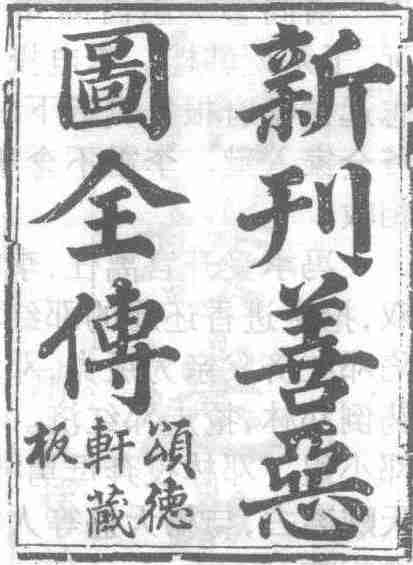 新刊善惡
圖全傳
頌德
軒藏
板